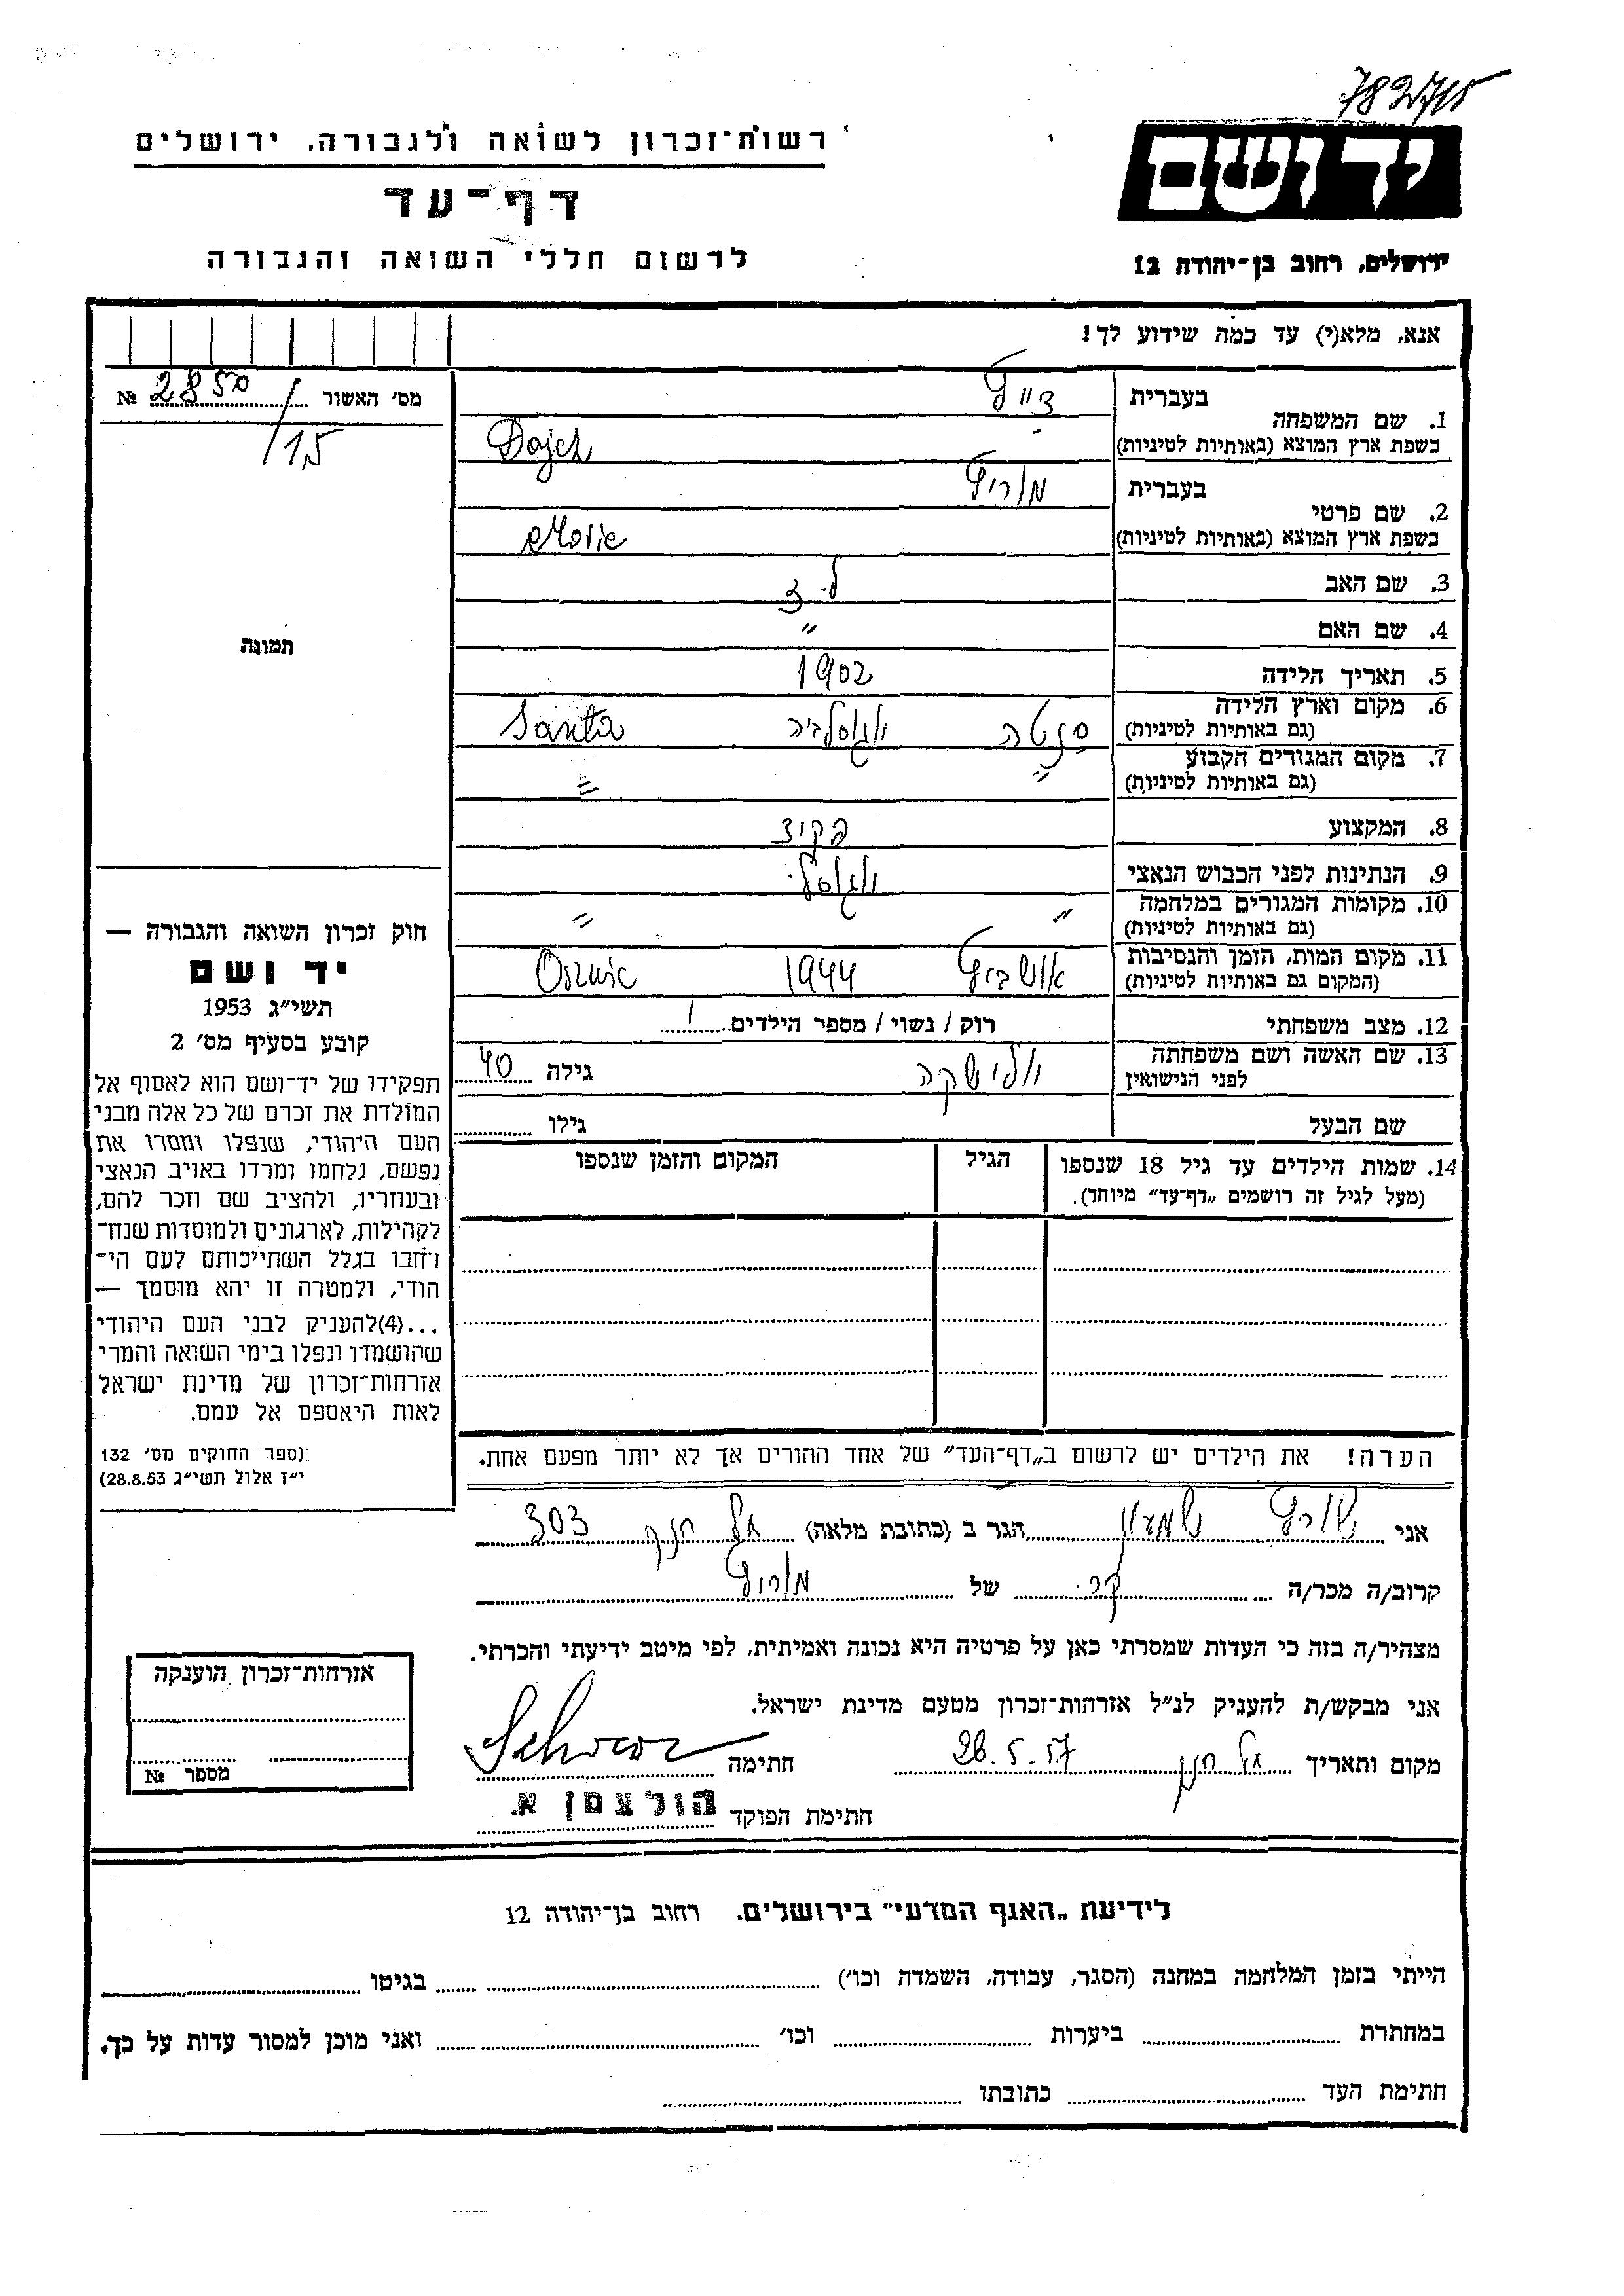 782715
רשות־זכרון לשואה ולגבורה. ירושלים
דף־עד
לרשום חללי השואה והגבורה
יד ושם
ירושלים, רחוב בן־יהודה 12
אנא, מלא(י) עד כמה שידוע לך!
מס׳ האשור № 2850
/15
תמונה
1. שם המשפחה
בעברית
בשפת ארץ המוצא (באותיות לטיניות) Dojch
2. שם פרטי
בעברית מוריץ
בשפת ארץ המוצא (באותיות לטיניות) Moric
3. שם האב
4. שם האם "
5. תאריך הלידה 1902
6. מקום וארץ הלידה
(גם באותיות לטיניות) סנטה יוגוסלביה Santa
7. מקום המגורים הקבוע
(גם באותיות לטיניות) " "
8. המקצוע פקיד
9. הנתינות לפני הכבוש הנאצי יוגוסל.
10. מקומות המגורים במלחמה
(גם באותיות לטיניות) " "
11. מקום המות, הזמן והנסיבות
(המקום גם באותיות לטיניות) אושביץ 1944
12. מצב משפחתי רוק / נשוי / מספר הילדים 1
13. שם האשה ושם משפחתה
לפני הנישואין גילה 40
שם הבעל גילו
14. שמות הילדים עד גיל 18 שנספו
(מעל לגיל זה רושמים „דף־עד” מיוחד).
הגיל
המקום והזמן שנספו
חוק זכרון השואה והגבורה —
יד ושם
תשי״ג 1953
קובע בסעיף מס׳ 2
תפקידו של יד־ושם הוא לאסוף אל
המולדת את זכרם של כל אלה מבני
העם היהודי, שנפלו ומסרו את
נפשם, נלחמו ומרדו באויב הנאצי
ובעוזריו, ולהציב שם וזכר להם,
לקהילות, לארגונים ולמוסדות שנח־
רבו בגלל השתייכותם לעם הי־
הודי, ולמטרה זו יהא מוסמך —
...(4)להעניק לבני העם היהודי
שהושמדו ונפלו בימי השואה והמרי
אזרחות־זכרון של מדינת ישראל
לאות היאספם אל עמם.
(ספר החוקים מס׳ 132
י״ז אלול תשי״ג 28.8.53)
הערה! את הילדים יש לרשום ב„דף־העד” של אחד ההורים אך לא יותר מפעם אחת.
אני שורץ שמעון הגר ב (כתובת מלאה) גל חנן 303
קרוב/ה מכר/ה קר. של מוריץ
מצהיר/ה בזה כי העדות שמסרתי כאן על פרטיה היא נכונה ואמיתית, לפי מיטב ידיעתי והכרתי.
אני מבקש/ת להעניק לנ״ל אזרחות־זכרון מטעם מדינת ישראל.
מקום ותאריך גל חנן 28.5.57 חתימה
חתימת הפוקד הולצמן א.
אזרחות־זכרון הוענקה
מספר №
לידיעת „האגף המדעי” בירושלים. רחוב בן־יהודה 12
הייתי בזמן המלחמה במחנה (הסגר, עבודה, השמדה וכו׳) בגיטו
במחתרת ביערות וכו׳ ואני מוכן למסור עדות על כך.
חתימת העד כתובתו